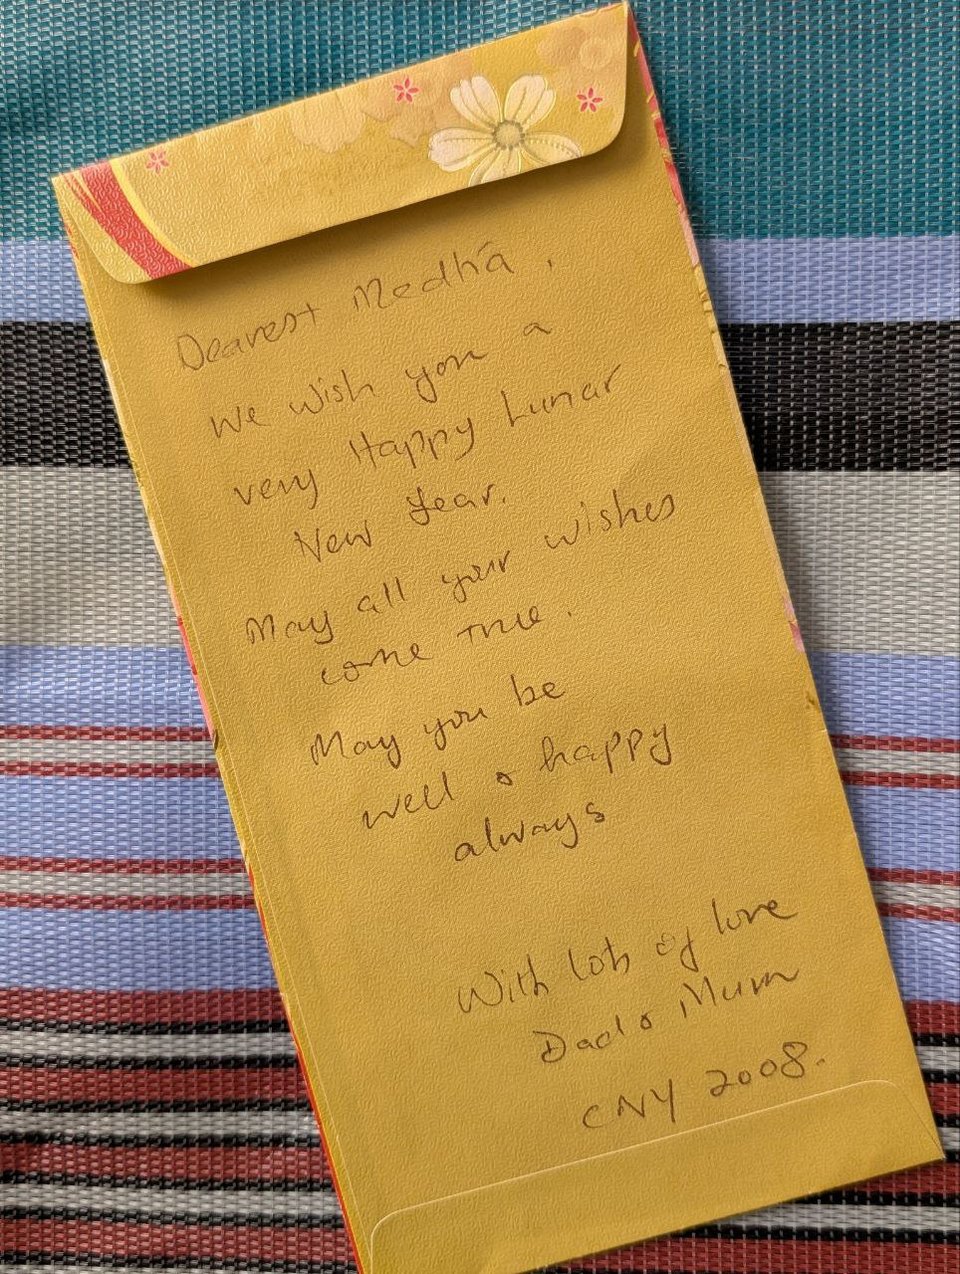 Dearest Medha,
We wish you a
very Happy Lunar
New Year.
May all your wishes
come true.
May you be
well & happy
always
With lots of love
Dad & Mum
CNY 2008.